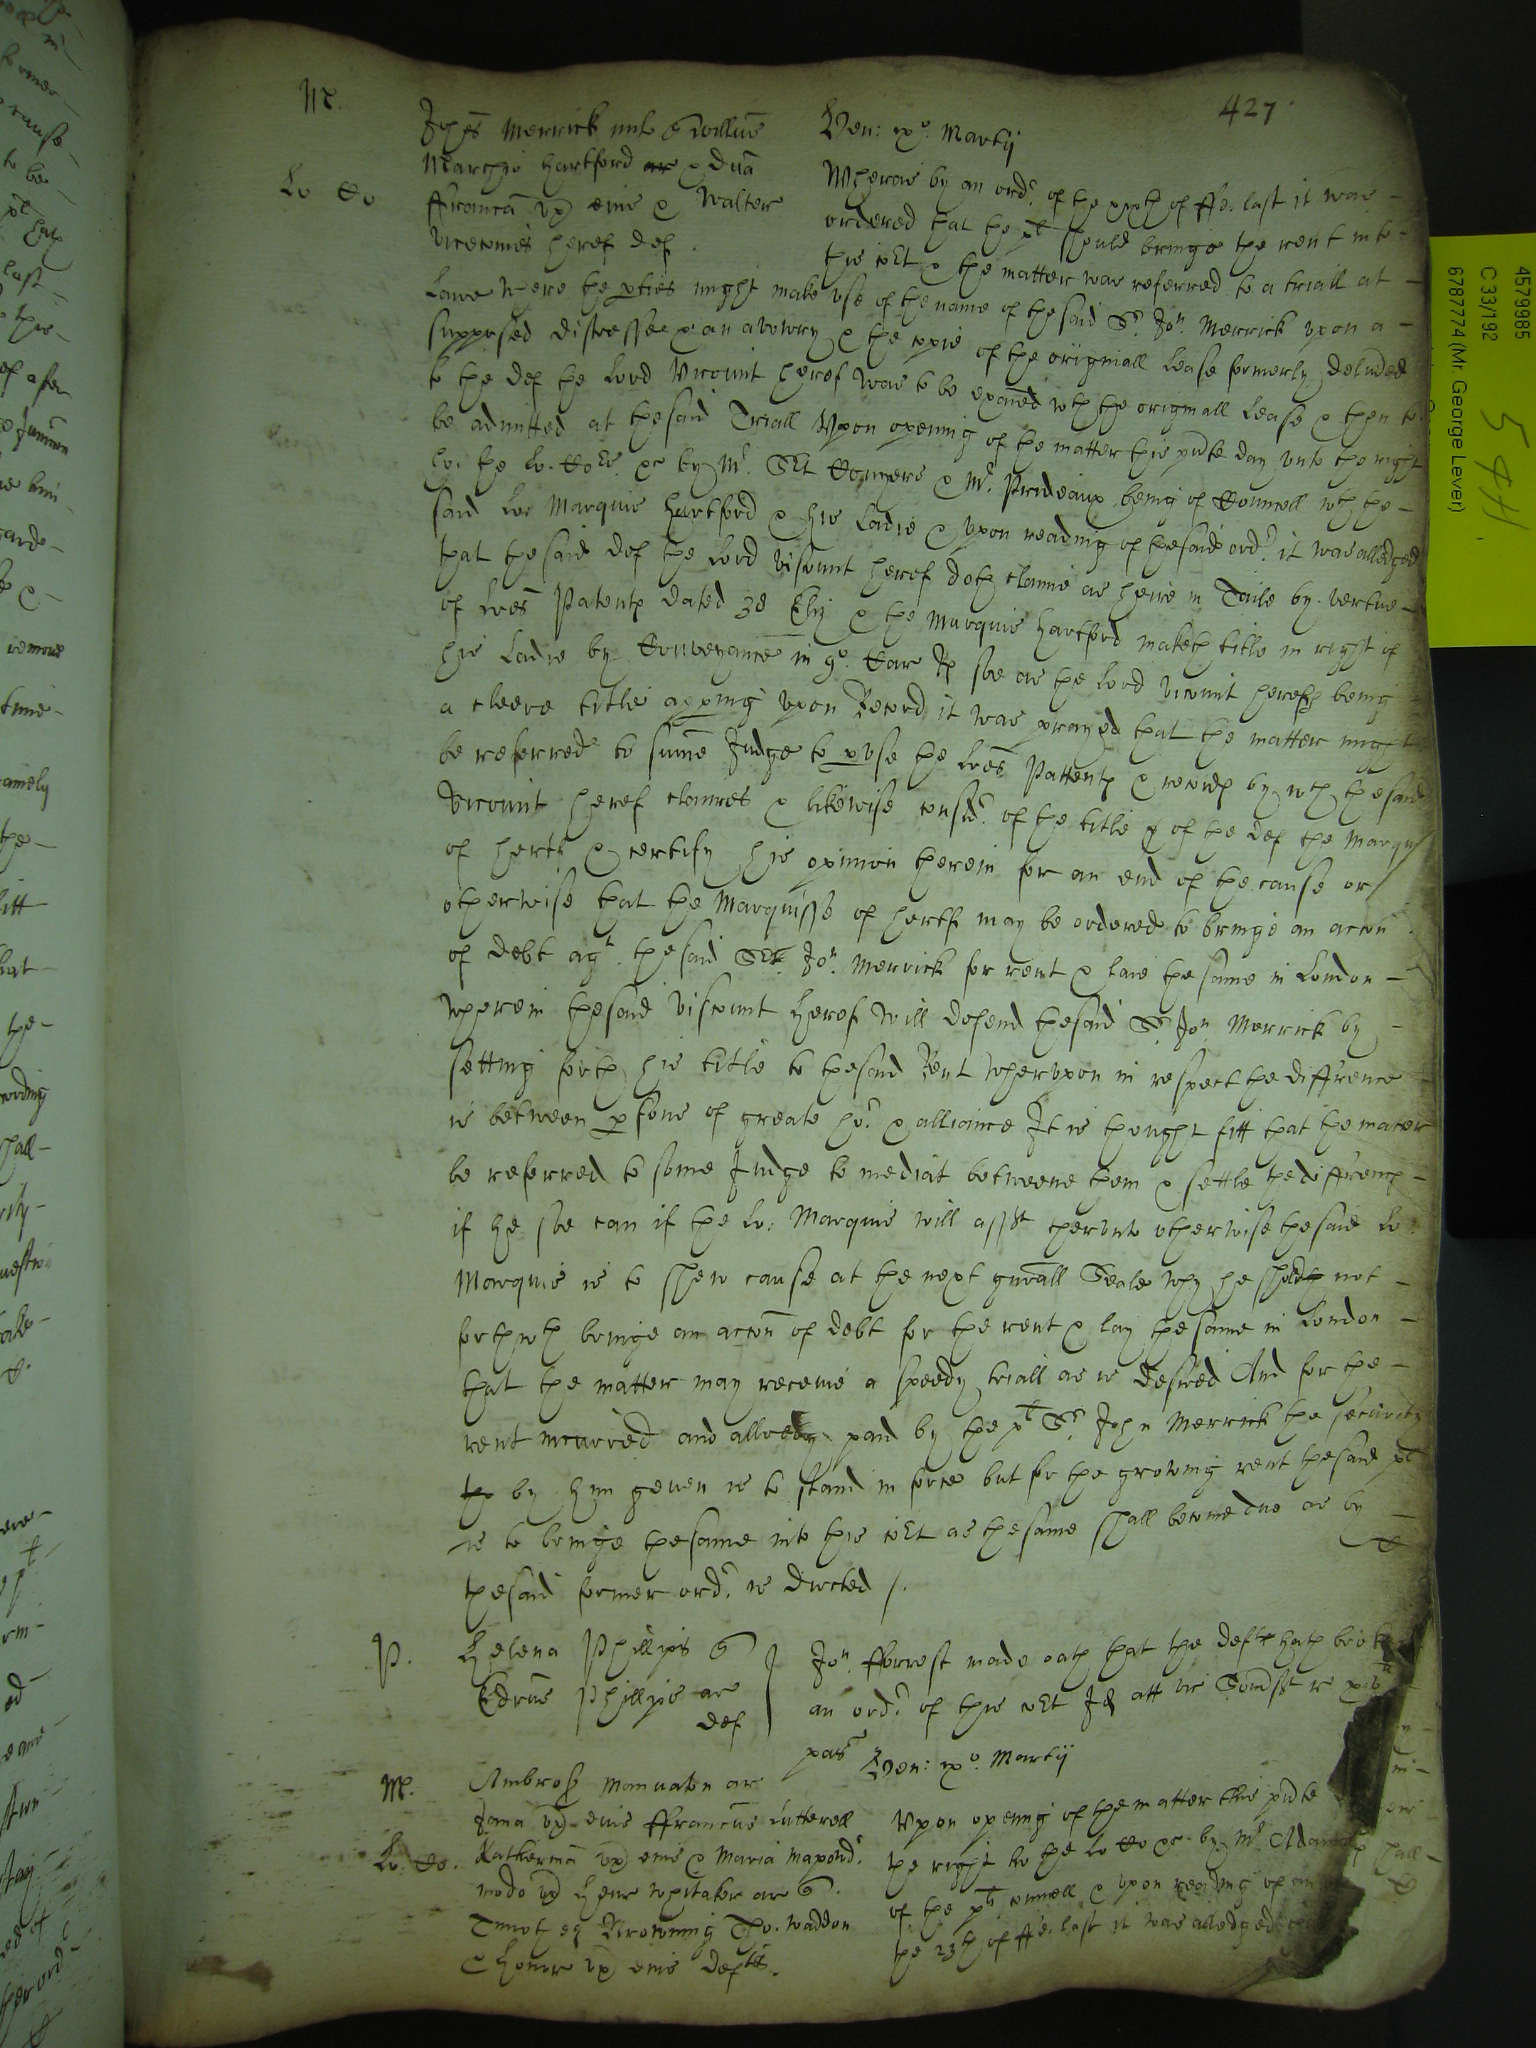 427
M.
Johes Merrick miles q Willim
Marchio Hartford ar & Dna
ffrancca vx eius & Walter
vicecomes heref def.
Lo Co
Ven: ixo. Martij
Wheras by an ordr. of the xxth of ffe. last it was
ordered that the plt should bringe the rent into
this cort & the matter was referred to a triall at
Lawe where the pties might make vse of the name of the said Sr. Jon. Merrick vpon a
supposed distresse & an avowry & the copie of the originall Lease formerly deliuded
to the def the Lord Vicount heref was to be exaied wth the originall Lease & then to
be admitted at the said Triall Vpon opening of the matter this pnte day vnto the right
ho. the Lo. Cors. &c by Mr. Srt Conyers & Mr. Prideaux being of Councell wth the
said Lo: Marquis Hartford & his Ladie & vpon reading of the said ordr. it was alledged
that the said def the Lord Viscount heref doth clayme as heire in Taile by vertue
of Lres Patents dated 38 Eliz & the Marquis Hartford maketh title in right of
his Ladie by Conveyance in 9o. Car Rs soe as the Lord Vicount heref being
a cleere title apping vpon Record it was prayed that the matter might
be referred to some Judge to pvse the Lres Pattents & records by wch the said
Vicount heref claimes & likewise considr. of the title of the def the Marquis
of hertf & certify his opinion therein for an end of the cause or
otherwise that the Marquisse of hertf may be ordered to bringe an accon
of debt agt. the said Sr. Jon. Merrick for rent & laie the same in London
wherein the said Viscount heref will defend the said Sr. Jon Merrick by
setting forth his title to the said Rent Wherevpon in respect the diffrence
is between psons of greate hor. & alliance It is thought fitt that the mater
be referred to some Judge to mediat betweene them & settle the diffrences
if he soe can if the Lo: Marquis will asst therevnto otherwise the said Lo
Marquis is to shew cause at the next gnrall Seale why he should not
forthwth bringe an accon of debt for the rent & lay the same in London
that the matter may receiue a speedy triall as is desired And for the
rent incurred and allready paid by the plt Sr. John Merrick the security
by him geuen is to stand in force but for the growing rent the said plt
is to bringe the same into this cort as the same shall become due as by
the said former ordr. is directed /.
P.
Helena Phillips q
Edrus Phillips ar
def
Jon. fforrest made oath that the deft hath broke
an ordr. of this cort Id att vic
M.
Ambros Manaton ar
Jana vx eius ffranciscus Lutterell
Katherina vx eius & Maria
modo vx Henr Whitaker ar q
Browning Tho. Waddon
& Honor vx eius defts.
Lo. Co.
Ven: ixo. Martij
Vpon opening of the matter this pnte
the right ho the Lo Co &c. by Mr.
of the plts councell & vpon reading of an
the 23th of ffe. last it was alledged
4579985
C 33/192
6787774 (Mr. George Lever)